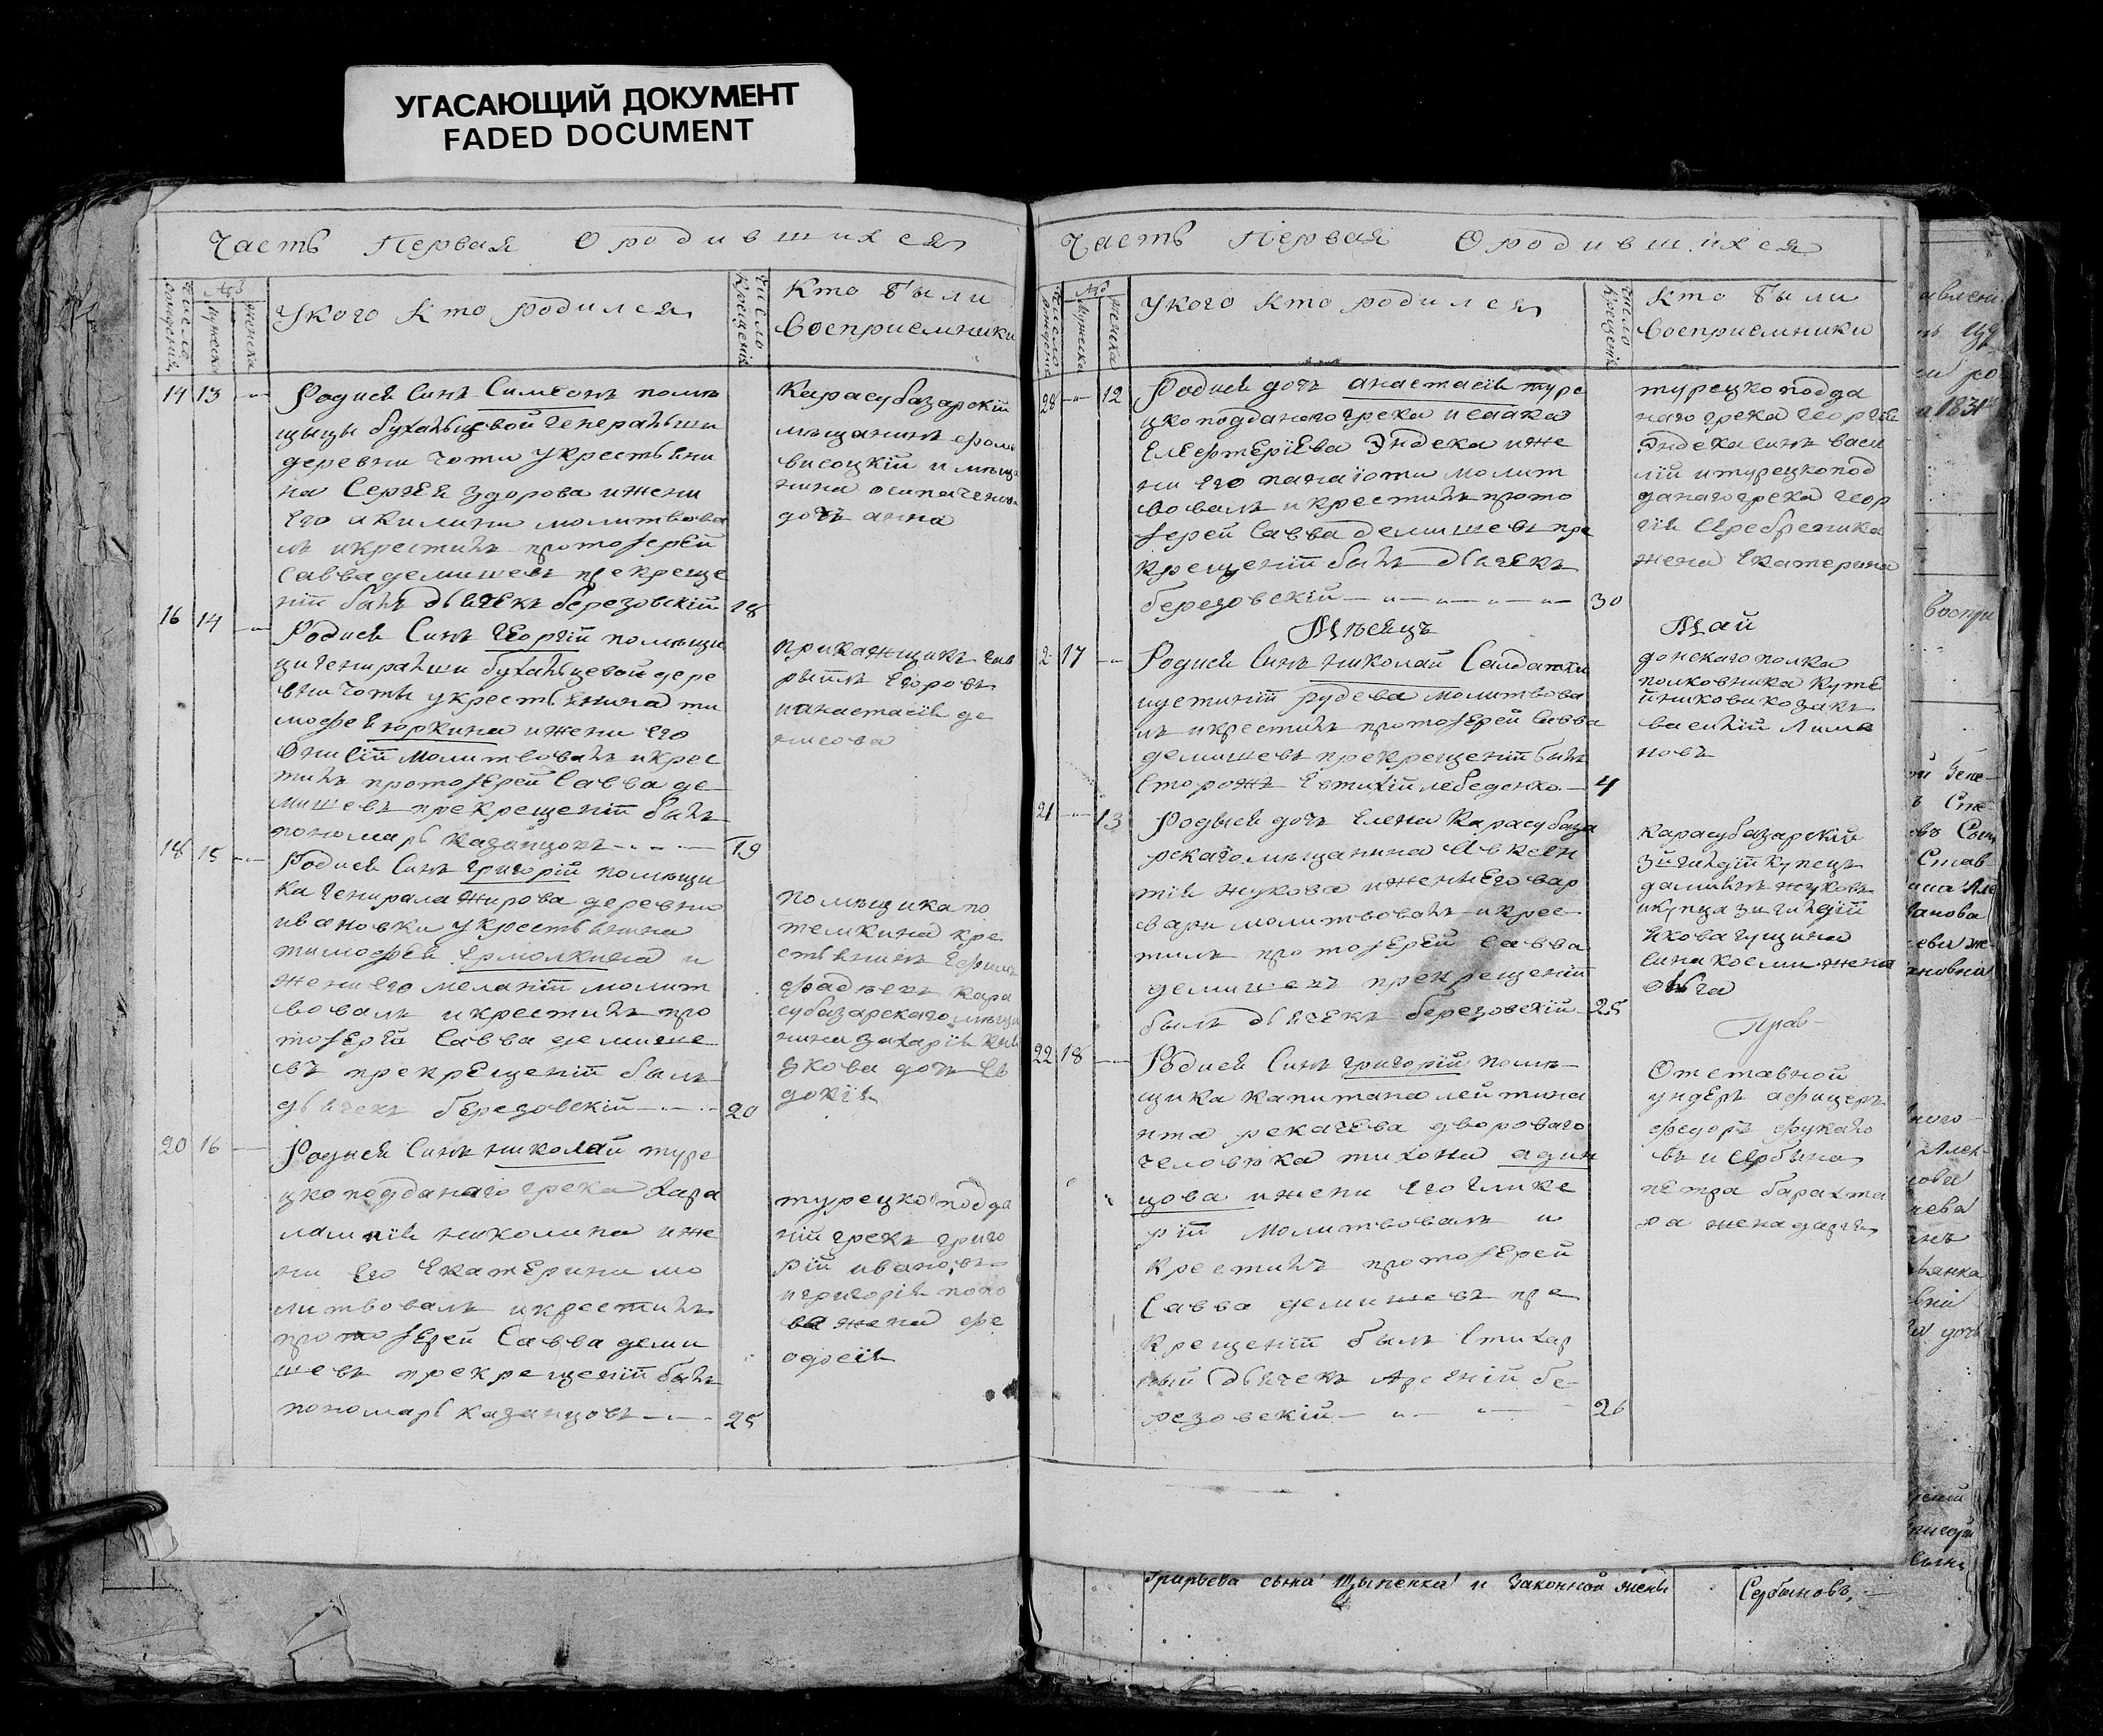 УГАСАЮЩИЙ ДОКУМЕНТ
FADED DOCUMENT
Часть Первая О родившихся
Число рождения
мужеска
женска
У кого кто родился
Число крещенія
Кто были
восприемники
14 13
Родися Синъ Симеонъ поме
щыцы бухальцевой генеральши
деревни чоти у крестьяни
на Сергея здорова и жени
его акилини молитвова
лъ и крестилъ протоіерей
Савва демишевъ при креще
ніи былъ дьячекъ березовскій 18
Карасубазарскій
мещанинъ
високій и меща
нина осипа
дочь анна
16 14
Родися Синъ Георгій помещи
ци генеральши бухальцевой дере
вни чоты у крестьянина ти
мофея юркина и жени его
Онисіи молитвовалъ и крес
тилъ протоіерей Савва де
мишевъ при крещеніи былъ
пономарь казанцовъ 19
прикажщикъ гав
рыілъ Егоровъ
и анастасія де
нисова
18 15
Родися Синъ григорій помещи
ка генирала жирова деревни
ивановки у крестьянина
тимофея Ермолкина и
жени его меланіи молит
вовалъ и крестилъ про
тоіерей Савва демише
въ при крещеніи былъ
дьячекъ березовскій 20
помещика по
темкина кре
стьянинъ Ефимъ
фадеевъ кара
субазарского меща
нина захарія
дочь Ев
докія
20 16
Родися Синъ николай туре
цкоподданаго грека хара
лампія николина и же
ни его Екатерини мо
литвовалъ и крестилъ
протоіерей Савва деми
шевъ при крещеніи былъ
пономарь казанцовъ 25
турецко подда
ній грекъ григо
рій ивановъ
и григорія попо
ва жена фе
одосія
Часть Первая О родившихся
Число рождения
мужеска
женска
У кого кто родился
Число крещенія
Кто были
восприемники
28 12
Родися дочь анастасія туре
цкоподданого грека исаака
Елефтеріева Эндека и же
ни его панаіоти молит
вовалъ и крестилъ прото
іерей Савва демишевъ при
крещеніи былъ дьячекъ
березовскій 30
турецкоподда
наго грека георгія
Эндека синъ васи
лій и турецкопод
данаго грека геор
гія Серебреника
жена Екатерина
Мѣсяцъ Май
2 17
Родися Синъ николай Салдатки
устиніи рудева молитвова
лъ и крестилъ протоіерей Савва
демишевъ при крещеніи былъ
Сторожъ Евтихій лебеденко 4
донскаго полка
полковника куте
йникови козакъ
василій Лима
новъ
21 13
Родися дочь Елена Карасубаза
рскаго мещанина Авксен
тія жукова и жени его вар
вари молитвовалъ и крес
тилъ протоіерей Савва
демишевъ при крещеніи
былъ дьячекъ березовскій 25
карасубазарскій
3й гилдіи купецъ
даміанъ жуковъ
и купца 3й гилдіи
якова гущина
сина косми жена
ольга
22 18
Родися Синъ григорій поме
щика капитана лейтина
нта рекачева двороваго
человека тихона один
цова и жени его глике
ріи молитвовалъ и
крестилъ протоіерей
Савва демишевъ при
крещеніи былъ Стихар
ный дьячекъ Арсеній бе
резовскій 26
Отставной
ундеръ афицеръ
федоръ фукало
въ и Сербина
петра барахта
ра жена дарія
1831
воспри
сына Щыпенка и законной жены
Сербиновъ,